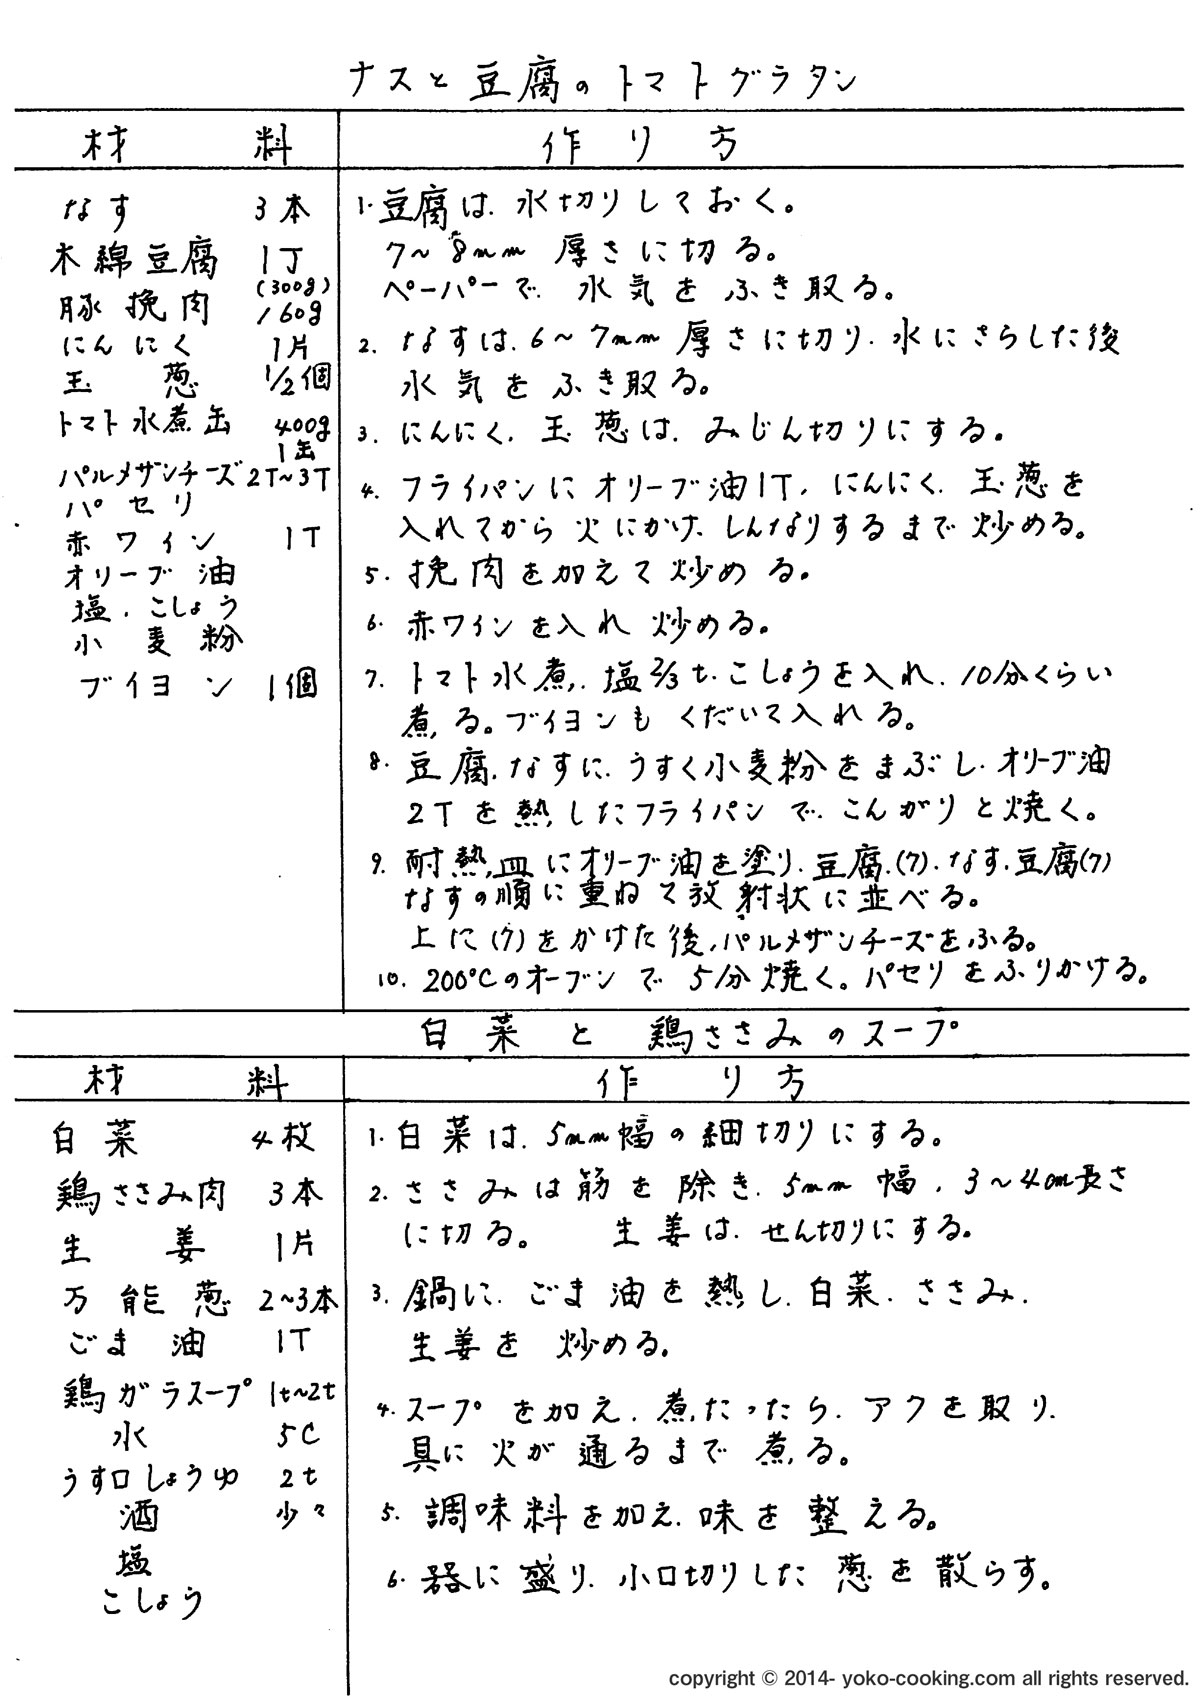 ナスと豆腐のトマトグラタン
材 料
作 り 方
なす 3本
木綿豆腐 1丁
(300g)
豚挽肉 160g
にんにく 1片
玉 葱 1/2個
トマト水煮缶 400g
1缶
パルメザンチーズ 2T~3T
パセリ
赤ワイン 1T
オリーブ油
塩、こしょう
小麦粉
ブイヨン 1個
1. 豆腐は、水切りしておく。
7~8mm 厚さに切る。
ペーパーで、水気をふき取る。
2. なすは、6~7mm厚さに切り、水にさらした後
水気をふき取る。
3. にんにく、玉葱は、みじん切りにする。
4. フライパンにオリーブ油1T、にんにく、玉葱を
入れてから火にかけ、しんなりするまで炒める。
5. 挽肉を加えて炒める。
6. 赤ワインを入れ炒める。
7. トマト水煮、塩2/3t、こしょうを入れ、10分くらい
煮る。ブイヨンもくだいて入れる。
8. 豆腐、なすに、うすく小麦粉をまぶし、オリーブ油
2Tを熱したフライパンで、こんがりと焼く。
9. 耐熱皿にオリーブ油を塗り、豆腐、(7)、なす、豆腐(7)
なすの順に重ねて放射状に並べる。
上に(7)をかけた後、パルメザンチーズをふる。
10. 200℃のオーブンで5分焼く。パセリをふりかける。
白菜と 鶏ささみのスープ
材 料
作 り 方
白菜 4枚
鶏ささみ肉 3本
生 姜 1片
万能葱 2~3本
ごま油 1T
鶏ガラスープ 1t~2t
水 5C
うす口しょうゆ 2t
酒 少々
塩
こしょう
1. 白菜は、5mm幅の細切りにする。
2. ささみは筋を除き、5mm幅、3~4cm長さ
に切る。 生姜は、せん切りにする。
3. 鍋に、ごま油を熱し、白菜、ささみ、
生姜を炒める。
4. スープを加え、煮たったら、アクを取り、
具に火が通るまで煮る。
5. 調味料を加え、味を整える。
6. 器に盛り、小口切りした葱を散らす。
copyright © 2014- yoko-cooking.com all rights reserved.